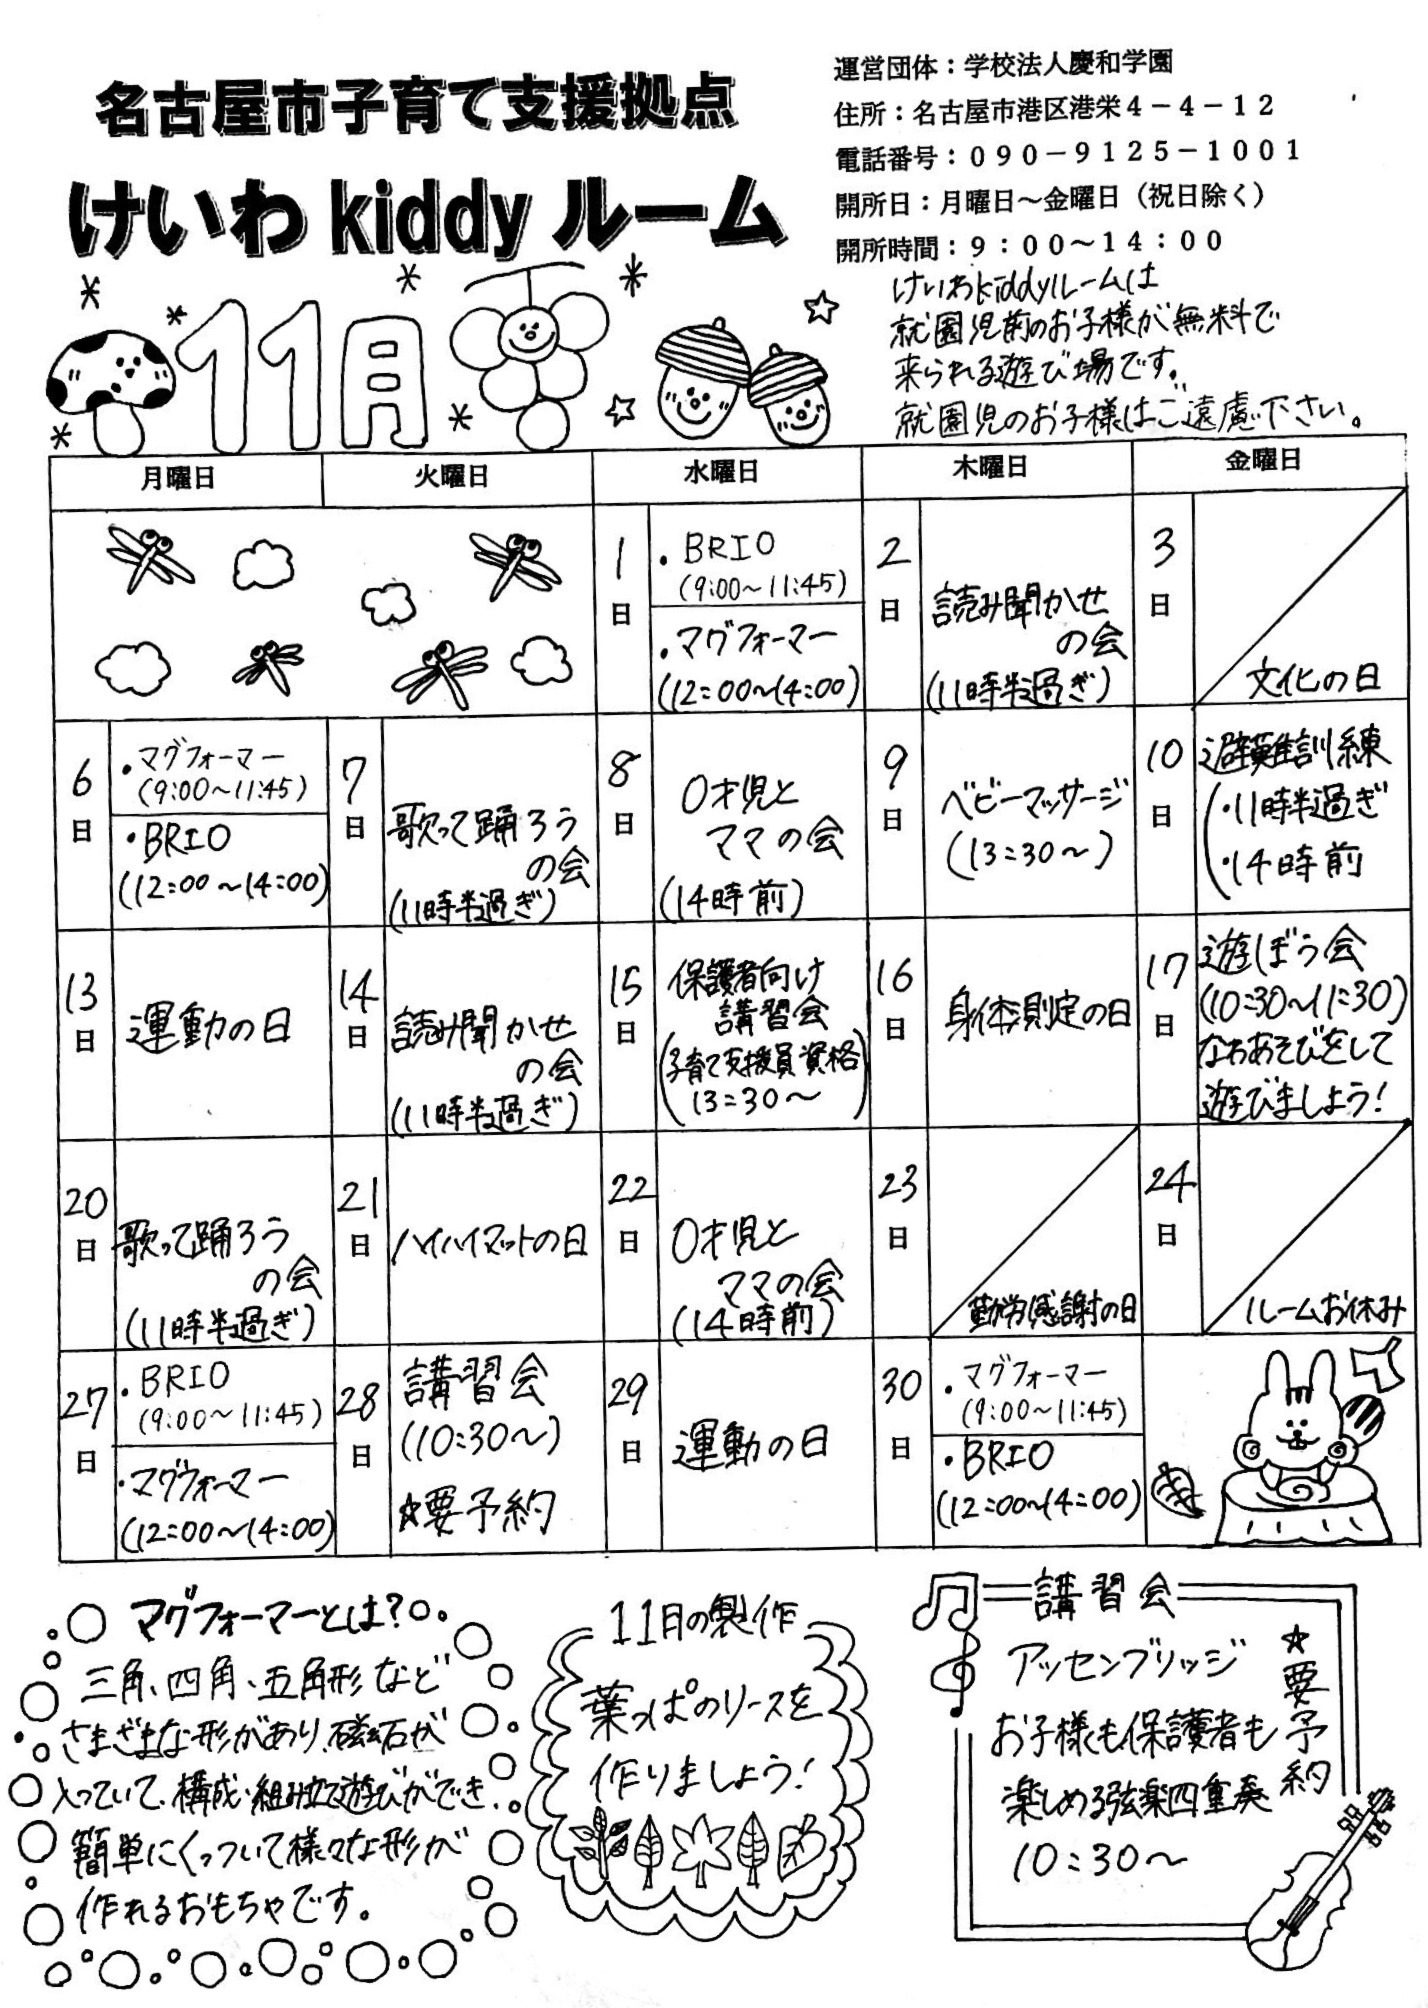 名古屋市子育て支援拠点
けいわ kiddy ルーム
運営団体：学校法人慶和学園
住所：名古屋市港区港栄４－４－１２
電話番号：０９０－９１２５－１００１
開所日：月曜日～金曜日（祝日除く）
開所時間：９：００～１４：００
11月
けいわkiddyルームは
就園児前のお子様が無料で
来られる遊び場です。
就園児のお子様はご遠慮下さい。
月曜日 火曜日 水曜日 木曜日 金曜日
1日
・BRIO
(9:00～11:45)
・マグフォーマー
(12:00～14:00)
2日
読み聞かせ
の会
(11時半過ぎ)
3日
文化の日
6日
・マグフォーマー
(9:00～11:45)
・BRIO
(12:00～14:00)
7日
歌って踊ろう
の会
(11時半過ぎ)
8日
0才児と
ママの会
(14時前)
9日
ベビーマッサージ
(13:30～)
10日
避難訓練
・11時半過ぎ
・14時前
13日
運動の日
14日
読み聞かせ
の会
(11時半過ぎ)
15日
保護者向け
講習会
(子育て支援員資格
13:30～)
16日
身体測定の日
17日
遊ぼう会
(10:30～11:30)
なわあそびをして
遊びましょう!
20日
歌って踊ろう
の会
(11時半過ぎ)
21日
ハイハイマットの日
22日
0才児と
ママの会
(14時前)
23日
勤労感謝の日
24日
ルームお休み
27日
・BRIO
(9:00～11:45)
・マグフォーマー
(12:00～14:00)
28日
講習会
(10:30～)
☆要予約
29日
運動の日
30日
・マグフォーマー
(9:00～11:45)
・BRIO
(12:00～14:00)
マグフォーマーとは?
三角、四角、五角形など
さまざまな形があり、磁石が
入っていて、構成・組み立て遊びができ、
簡単にくっついて様々な形が
作れるおもちゃです。
11月の製作
葉っぱのリースを
作りましょう!
講習会
アッセンブリッジ
お子様も保護者も
楽しめる弦楽四重奏
10:30～
☆要予約